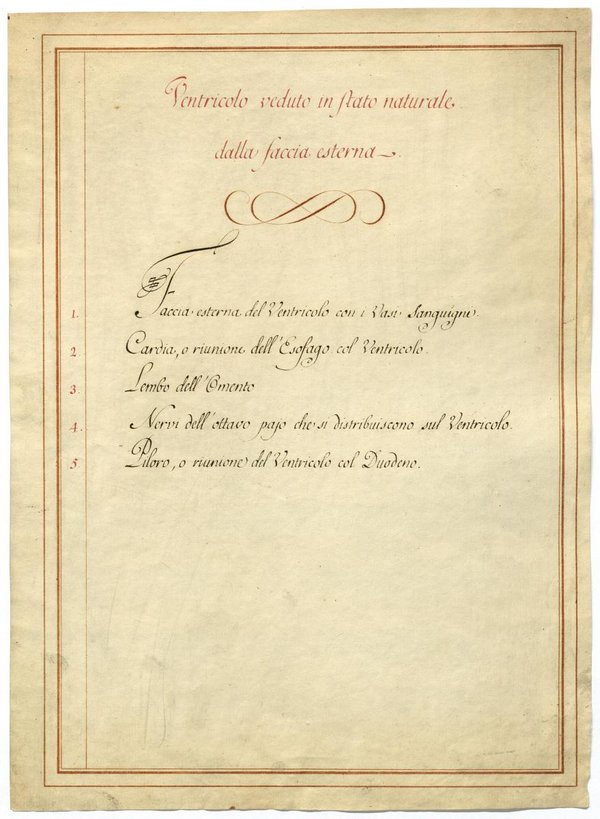 Ventricolo veduto in stato naturale
dalla faccia esterna.
1. Faccia esterna del Ventricolo con i Vasi Sanguigni.
2. Cardia, o riunione dell'Esofago col Ventricolo.
3. Lembo dell'Omento
4. Nervi dell'ottavo pajo che si distribuiscono sul Ventricolo.
5. Piloro, o riunione del Ventricolo col Duodeno.